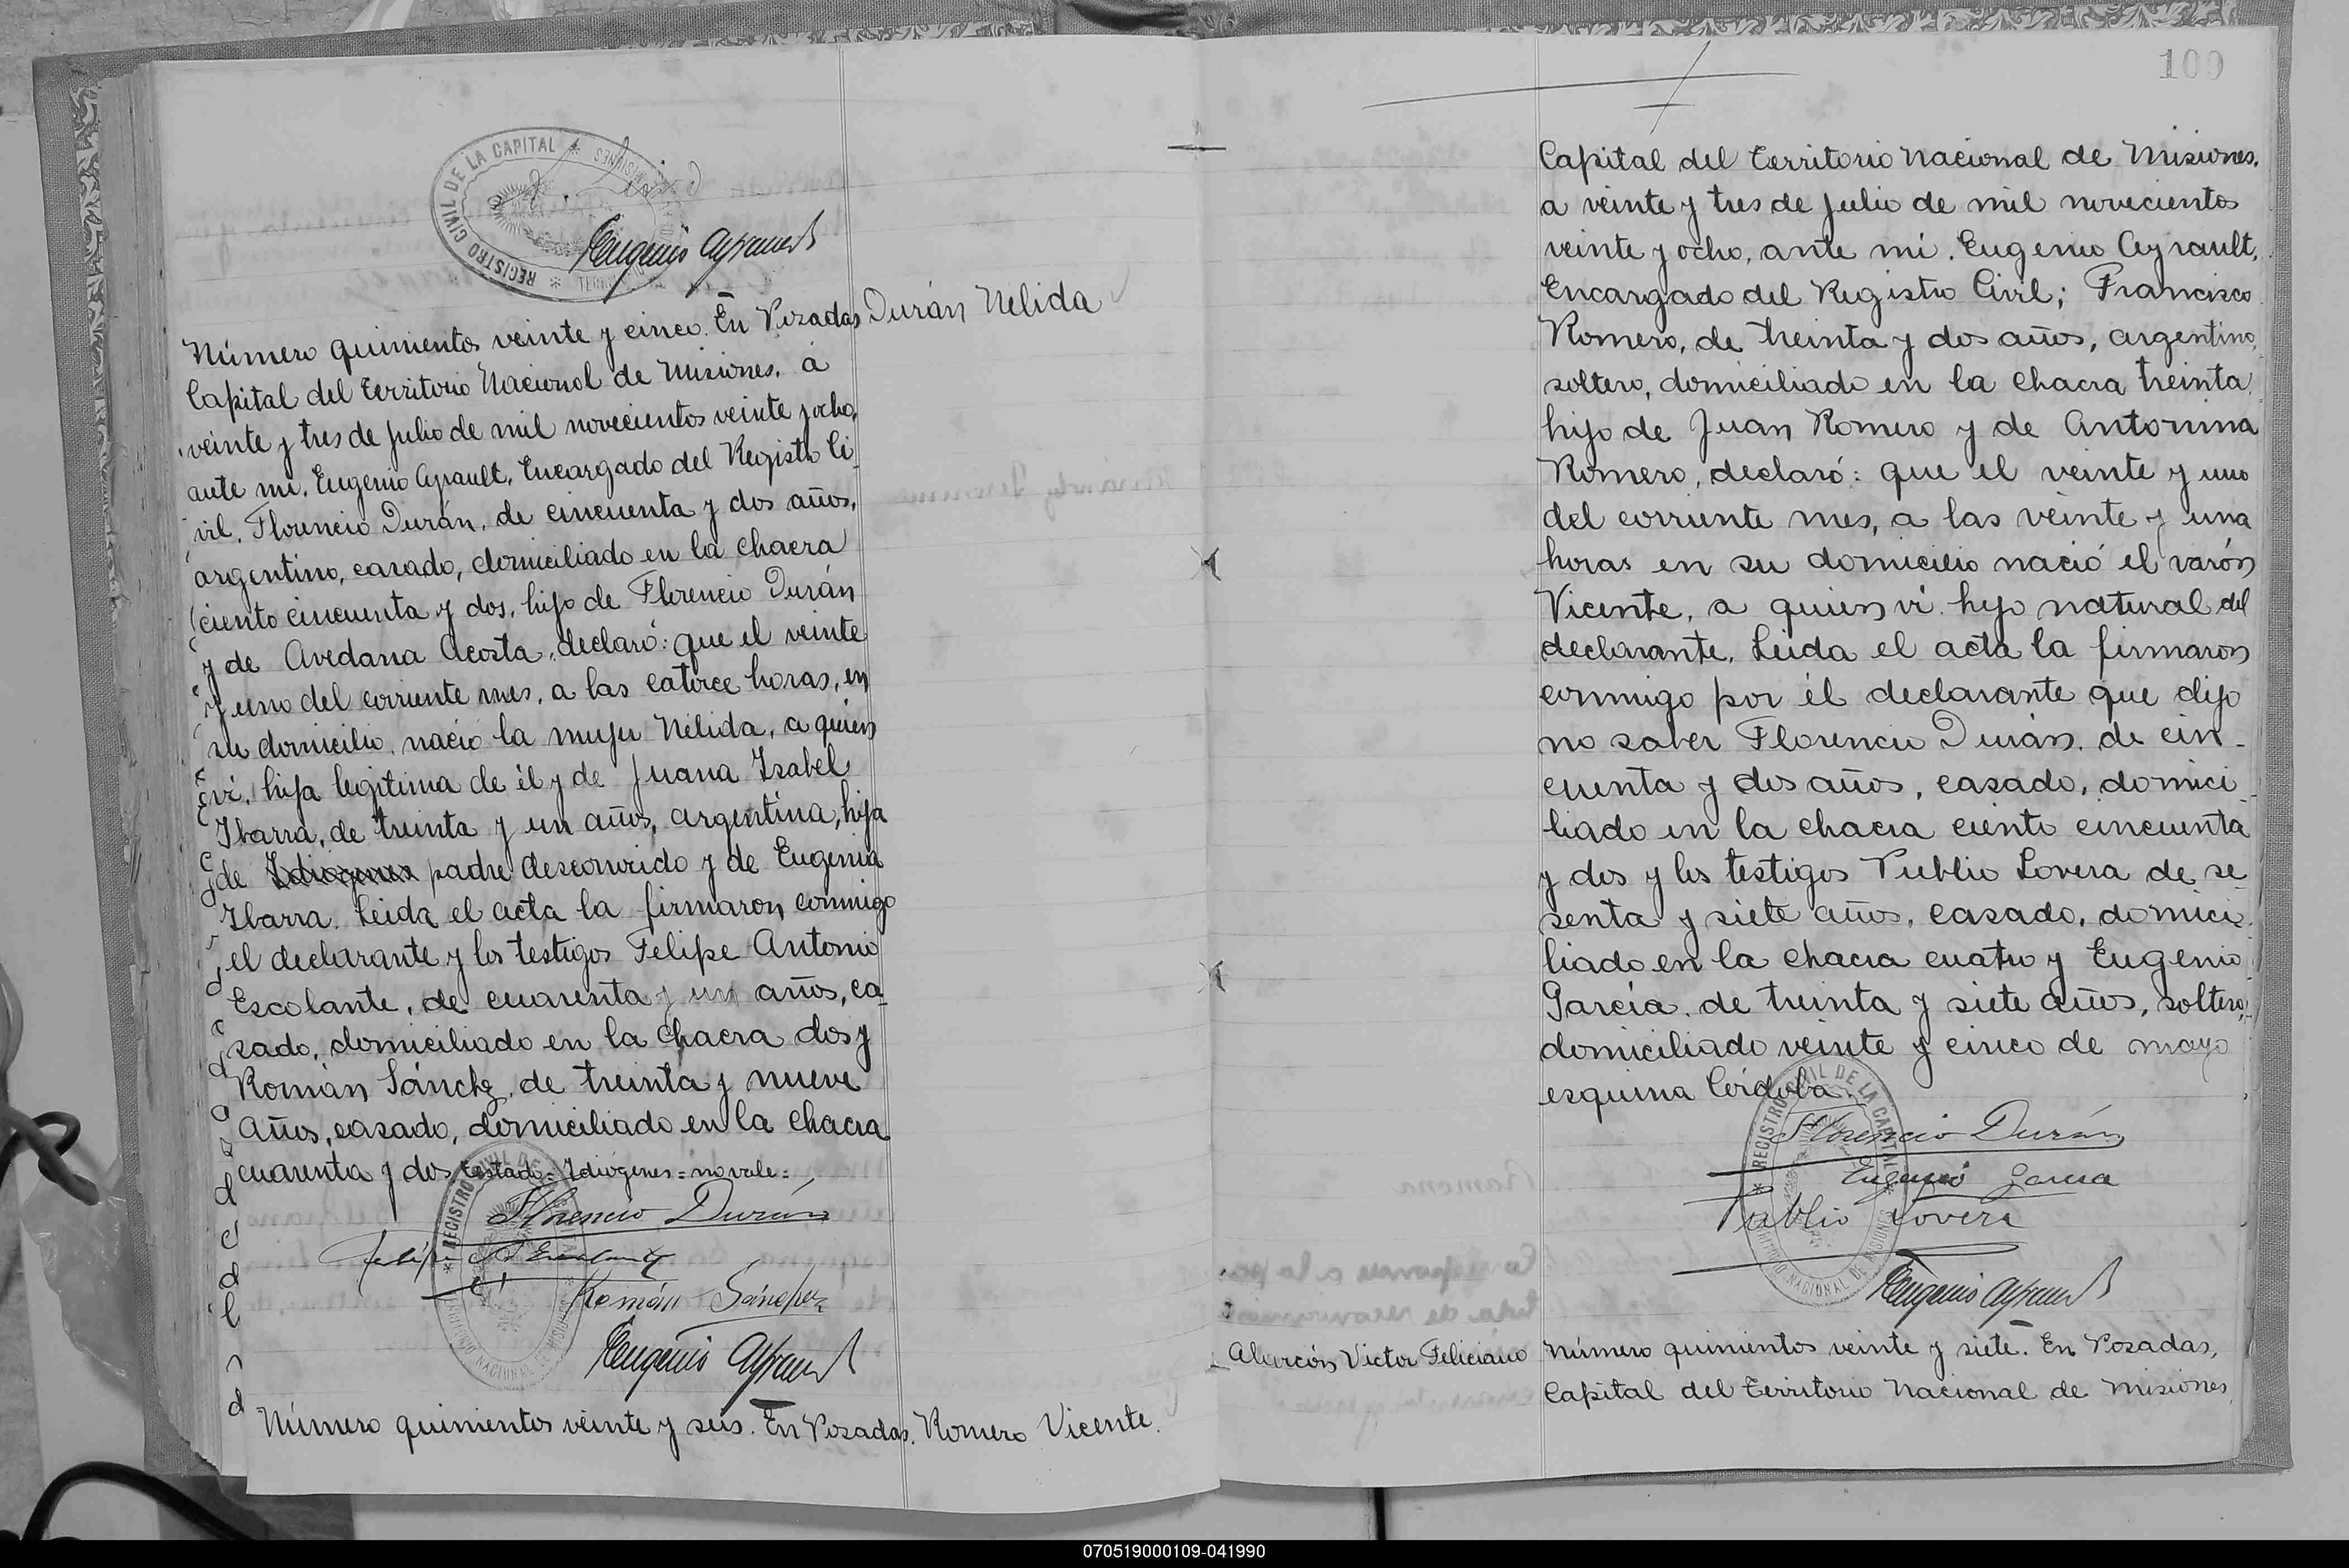 REGISTRO CIVIL DE LA CAPITAL
Eugenio Ayrault
Durán Nélida
Número quinientos veinte y cinco. En Posadas
Capital del Territorio Nacional de Misiones, a
veinte y tres de Julio de mil novecientos veinte y ocho,
ante mi, Eugenio Ayrault, Encargado del Registro Ci-
vil, Florencio Durán, de cincuenta y dos años,
argentino, casado, domiciliado en la chacra
ciento cincuenta y dos, hijo de Florencio Durán
y de Avedana Acosta, declaró: que el veinte
y uno del corriente mes, a las catorce horas, en
su domicilio, nació la mujer Nélida, a quien
vi, hija legítima de él y de Juana Isabel
Ibarra, de treinta y un años, argentina, hija
de Idiogenes padre desconocido y de Eugenia
Ibarra. Leida el acta la firmaron conmigo
el declarante y los testigos Felipe Antonio
Escolante, de cuarenta y un años, ca-
sado, domiciliado en la chacra dos y
Román Sánchz, de treinta y nueve
años, casado, domiciliado en la chacra
cuarenta y dos Testado=Idiógenes=no vale=
Florencio Durán
Felipe A Escalante
Román Sánchez
Eugenio Ayrault
Número quinientos veinte y seis. En Posadas,
Romero Vicente.
100
Capital del Territorio Nacional de Misiones,
a veinte y tres de Julio de mil novecientos
veinte y ocho, ante mi, Eugenio Ayrault,
Encargado del Registro Civil; Francisco
Romero, de treinta y dos años, argentino,
soltero, domiciliado en la chacra treinta,
hijo de Juan Romero y de Antonina
Romero, declaró: que el veinte y uno
del corriente mes, a las veinte y una
horas en su domicilio nació el varón
Vicente, a quien vi, hijo natural del
declarante. Leida el acta la firmaron
conmigo por él declarante que dijo
no saber Florencio Durán, de cin-
cuenta y dos años, casado, domici-
liado en la chacra ciento cincuenta
y dos y los testigos Publio Lovera de se-
senta y siete años, casado, domici-
liado en la chacra cuatro y Eugenio
García, de treinta y siete años, soltero,
domiciliado veinte y cinco de mayo
esquina Córdoba.
Florencio Durán
Eugenio Garcia
Publio Lovera
Eugenio Ayrault
Alarcón Victor Feliciano
Número quinientos veinte y siete. En Posadas,
Capital del Territorio Nacional de Misiones,
070519000109-041990